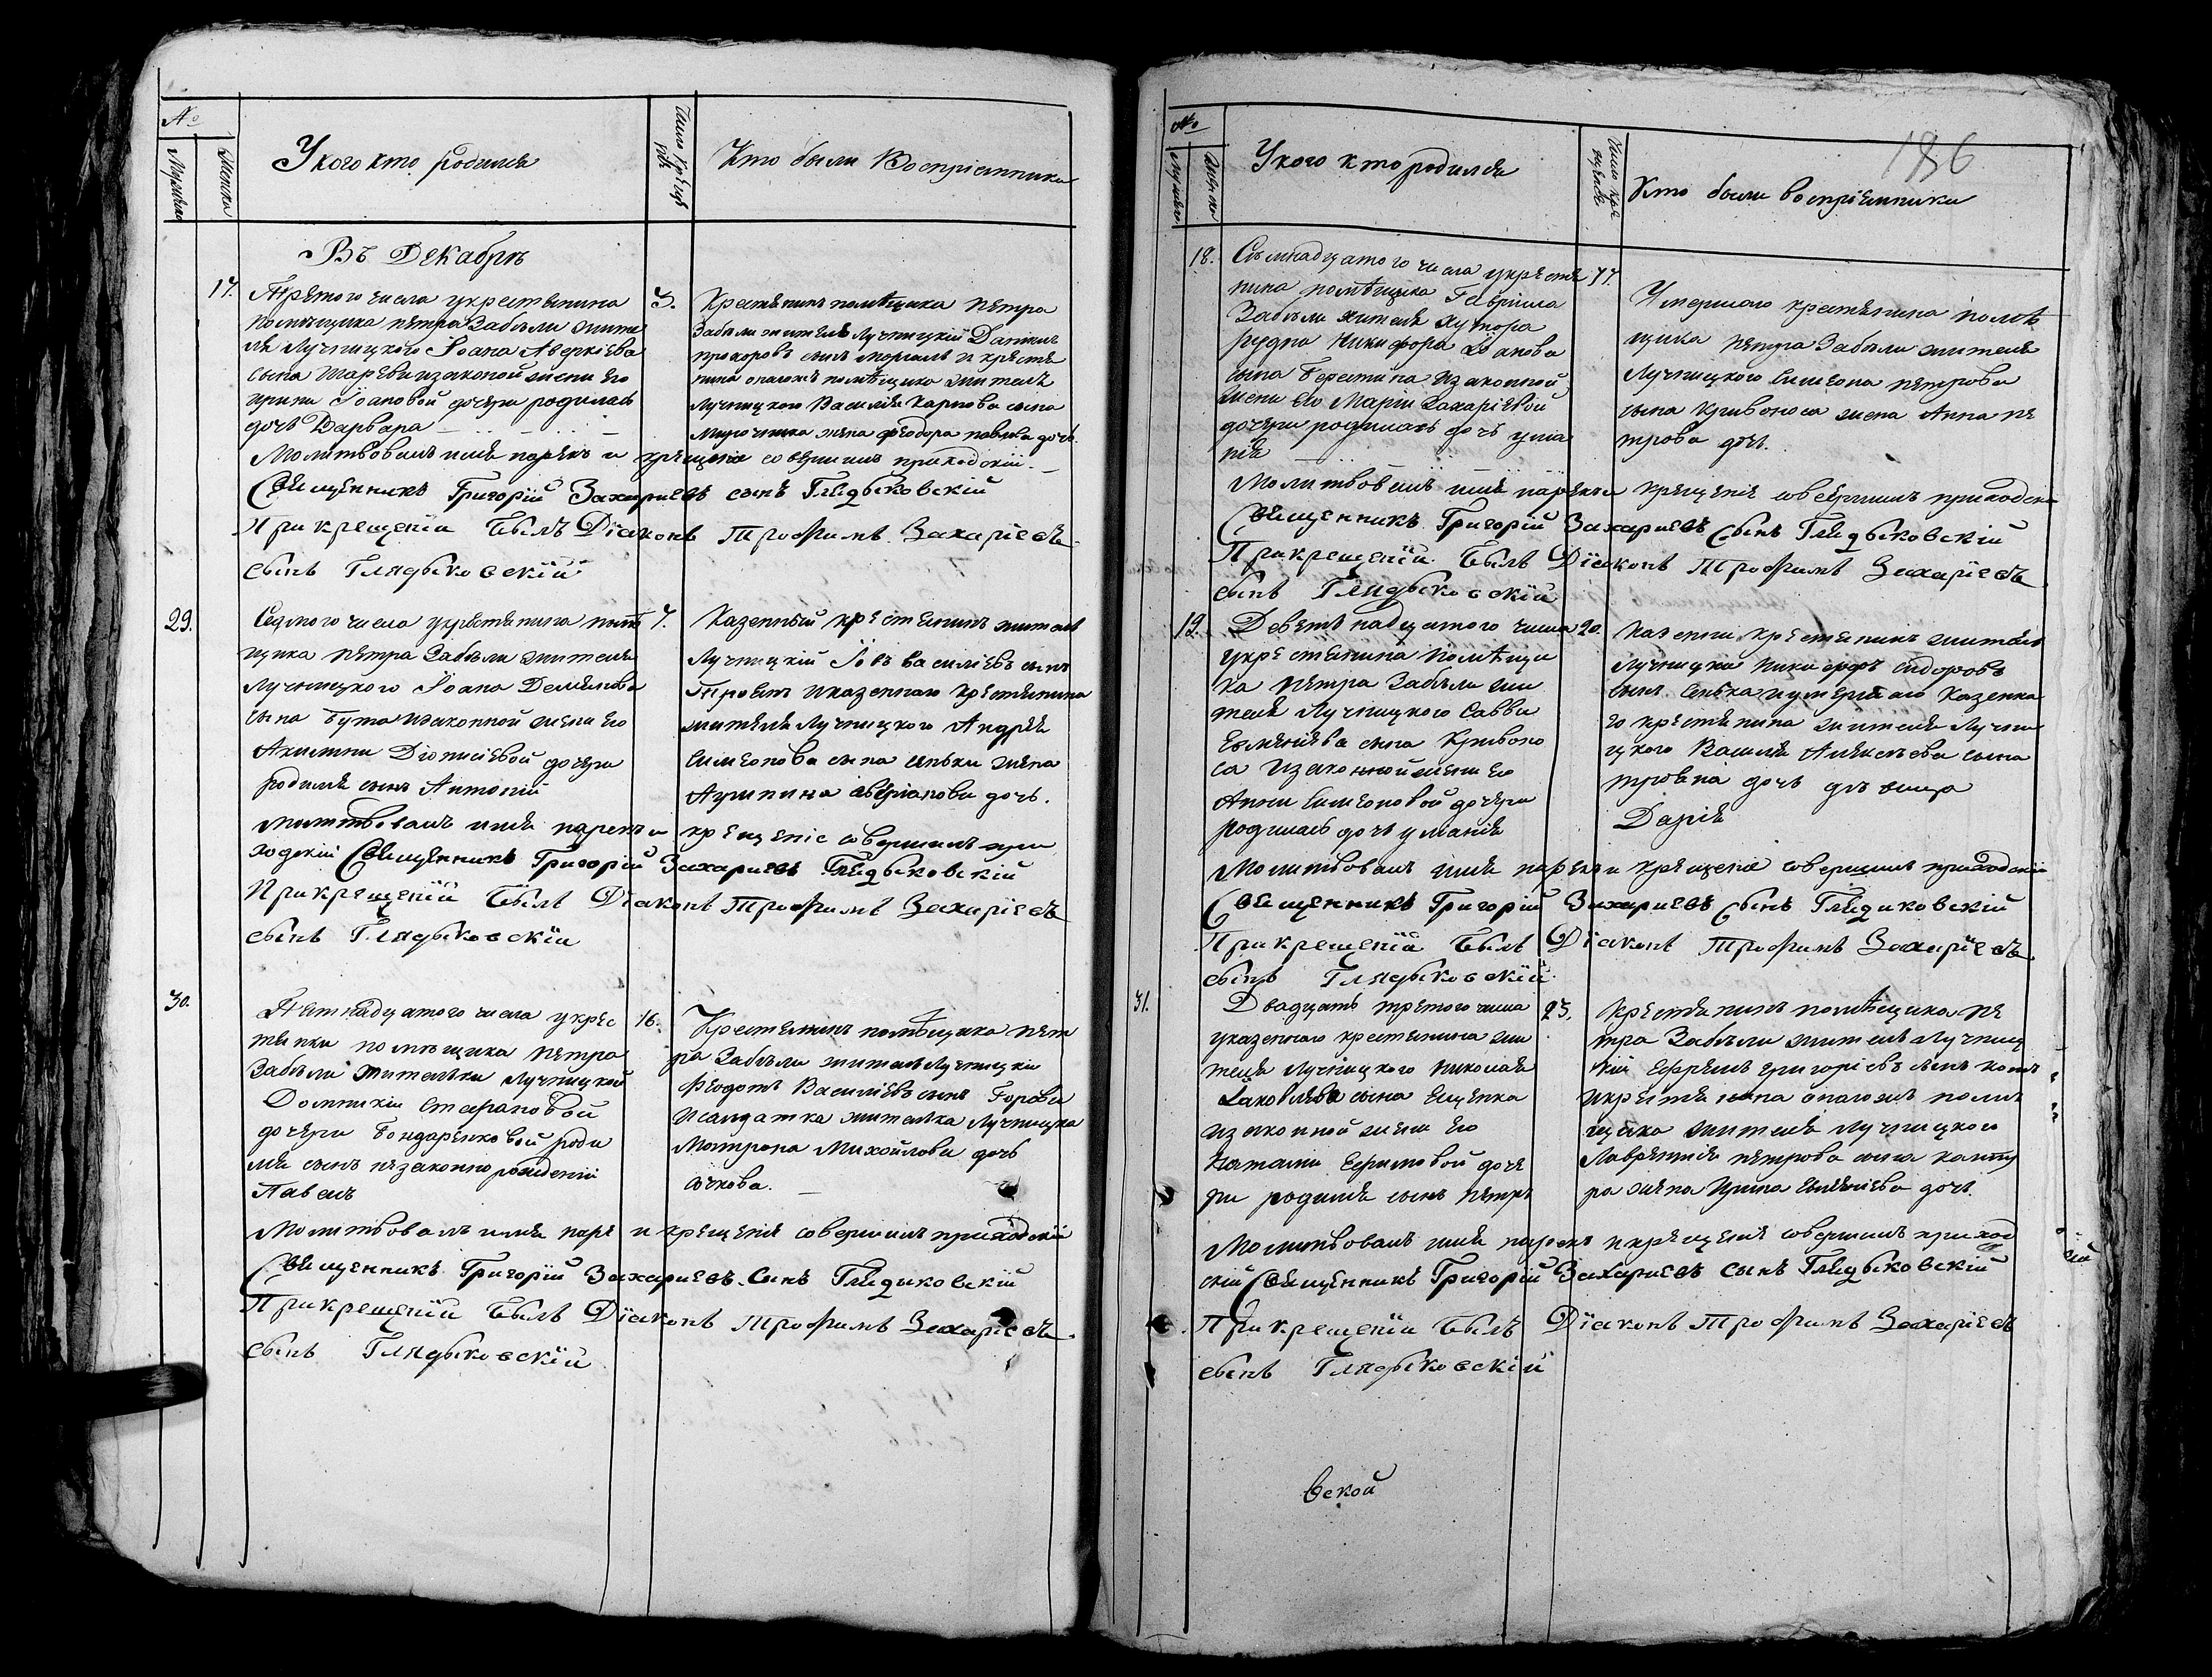 №
Мужеска
Женска
У кого кто родился
Число Крещенія
Кто были Воспріемники
Въ Декабрѣ
17.
Третого числа у крестянина
помѣщика петра Забѣли жите
ля Лучницкого Іоана Аверкіева
сына и законой жени его
ирини Іоановой дочери родилась
дочь Варвара
3.
Крестянинъ помѣщика Петра
Забѣли житель Лучницкій Даніилъ
прохоровъ синъ и крестя
нина онагожъ помѣщика жителя
Лучницкого Василія Карпова сына
Мирочника жена феодора павлова дочь.
Молитвовалъ имя нарекъ и крещеніе совершилъ приходскій
Священникъ Григорій Захаріевъ сынъ Глядыковскій
При крещеніи былъ Діаконъ Трофимъ Захаріевъ
сынъ Глядыковскій
29.
Седмого числа у крестянина помѣ
щика петра Забѣли жителя
Лучницкого Іоана Демянова
сына Бута и законной жени его
Акилини Діонисіевой дочери
родился сынъ Антоній
7.
Казенный крестянинъ житель
Лучницкій Іовъ василіевъ синъ
и казенного крестянина
жителя Лучницкого Андрея
симеонова сына сенки жена
Агрипина аверіанова дочь.
молитвовалъ имя нарекъ и крещеніе совершилъ при
ходскій Священникъ Григорій Захаріевъ Глядыковскій
При крещеніи былъ Діаконъ Трофимъ Захаріевъ
сынъ Глядыковскій
30.
Пятнадцатого числа у крес
тянки помѣщика петра
Забѣли жителки Лучницкой
Домникіи Стефановой
дочери Бондаренковой роди
лся сынъ незаконнорожденій
Павелъ
16.
Крестянинъ помѣщика пет
ра Забѣли житель Лучницкій
Феодотъ Василіевъ синъ
и салдатка жителка Лучницка
Матрона Михойлова дочь
Молитвовалъ имя наре и крещеніе совершилъ приходскій
Священникъ Григорій Захаріевъ Сынъ Глядиковскій
При крещеніи былъ Діаконъ Трофимъ Захаріевъ
сынъ Глядыковскій
186
№
У кого кто родился
Число крещенія
Кто были воспріемники
18.
Сѣмнадцатого числа у крестя
нина помѣщика Гавріила
Забѣли жителя хутора
рудна Никифора Іоанова
сына Берестина и законной
жени его Маріи Захаріевой
дочери родилась дочь улиа
нія
17.
Умершаго крестянина помѣ
щика петра Забѣли жителя
Лучницкого симеона петрова
сына Кривоноса жена Анна пе
трова дочь.
Молитвовалъ имя нарекъ и крещеніе совершилъ приходскі
Священникъ Григорій Захаріевъ Сынъ Глядыковскій
При крещеніи былъ Діаконъ Трофимъ Захаріевъ
сынъ Глядыковскій
19.
Девятнадцатого числа
у крестянина помѣщи
ка петра Забѣли жи
теля Лучницкого Савви
Евменіева сына Кривоно
са и законной жени его
Анни Симеоновой дочери
родилась дочь улианія
20.
казенни крестянинъ житель
Лучницкій никифоръ сидоровъ
синъ сенка и умершаго казенна
го крестянина жителя Лучни
цкого Василія Алексѣева сына
дочь
Дарія
Молитвовалъ имя нарекъ и крещеніе совершилъ приходскій
Священникъ Григорій Захаріевъ Сынъ Глядиковскій
При крещеніи былъ Діаконъ Трофимъ Захаріевъ
сынъ Глядыковскій
31.
Двадцять третого числа
у казенного крестянина жи
теля Лучницкого николая
Іаковлева сына Ещенка
и законной жени его
наталіи Ефимовой доче
ри родился сынъ петръ
23.
крестянинъ помѣщика пе
тра Забѣли житель Лучниц
кій Ефремъ григоріевъ синъ
и крестянина онагожъ помѣ
щика жителя Лучницкого
Лаврентія петрова сина
жена Ирина евменіева дочь.
Молитвовалъ имя нарекъ и крещеніе совершилъ приход
скій Священникъ Григорій Захаріевъ сынъ Глядыковскій
При крещеніи былъ Діаконъ Трофимъ Захаріевъ
сынъ Глядыковскій
вской